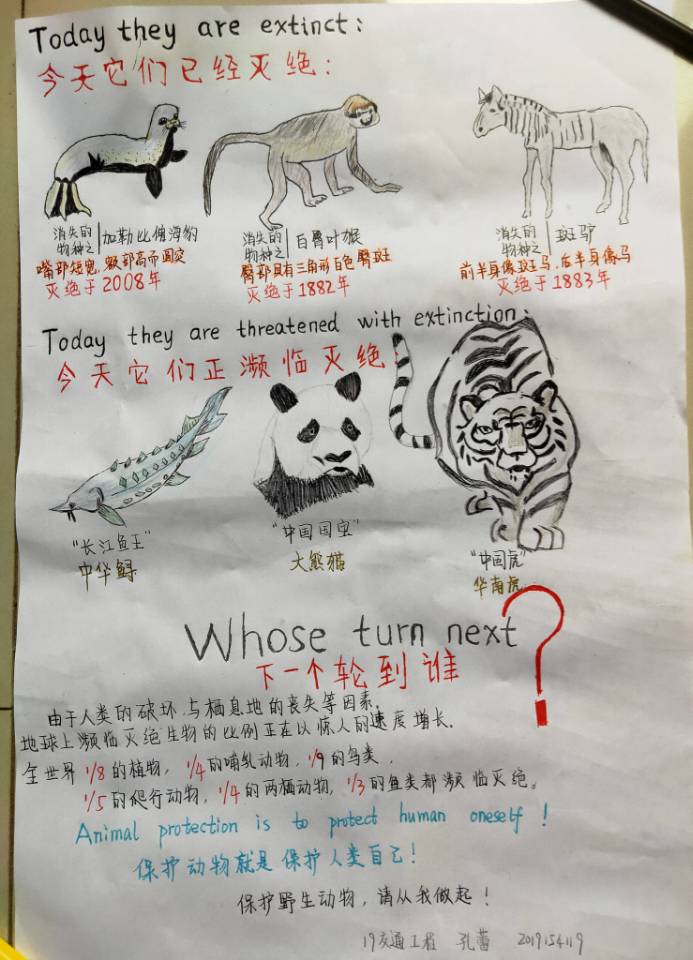 Today they are extinct:
今天它们已经灭绝:
消失的物种之一 加勒比僧海豹
嘴部短宽,额部高而圆突
灭绝于2008年
消失的物种之一 白臀叶猴
臀部具有三角形白色臀斑
灭绝于1882年
消失的物种之一 斑驴
前半身像斑马,后半身像马
灭绝于1883年
Today they are threatened with extinction:
今天它们正濒临灭绝:
"长江鱼王"
中华鲟
"中国国宝"
大熊猫
"中国虎"
华南虎
Whose turn next?
下一个轮到谁
由于人类的破坏与栖息地的丧失等因素,
地球上濒临灭绝生物的比例正在以惊人的速度增长.
全世界1/8的植物,1/4的哺乳动物,1/9的鸟类,
1/5的爬行动物,1/4的两栖动物,1/3的鱼类都濒临灭绝。
Animal protection is to protect human oneself!
保护动物就是保护人类自己!
保护野生动物,请从我做起!
19交通工程 孔蕾 2019154119